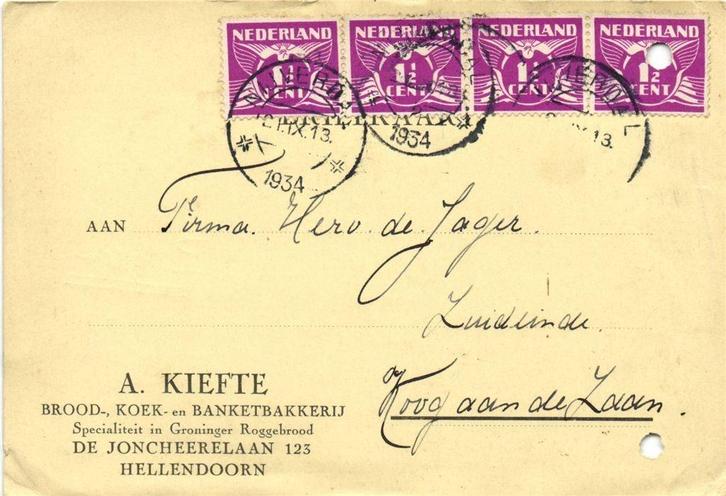 NEDERLAND NEDERLAND NEDERLAND NEDERLAND
1½ CENT 1½ CENT 1½ CENT 1½ CENT
BRIEFKAART
1934 1934
AAN Firma. Herv. de Jager.
Zuideinde.
Koog aan de Zaan.
A. KIEFTE
BROOD-, KOEK- en BANKETBAKKERIJ
Specialiteit in Groninger Roggebrood
DE JONCHEERELAAN 123
HELLENDOORN